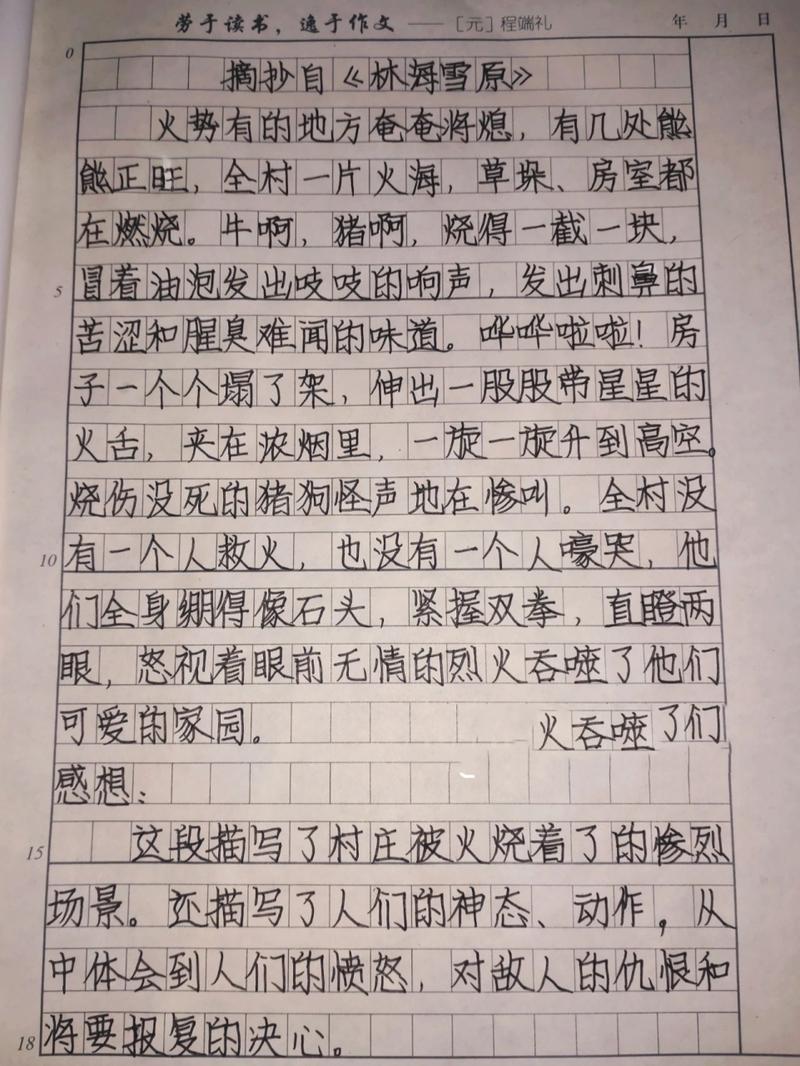 劳于读书，逸于作文 —— [元] 程端礼 年 月 日
0
摘抄自《林海雪原》
火势有的地方奄奄将熄，有几处熊
熊正旺，全村一片火海，草垛、房室都
在燃烧。牛啊，猪啊，烧得一截一块，
5 冒着油泡发出吱吱的响声，发出刺鼻的
苦涩和腥臭难闻的味道。哗哗啦啦！房
子一个个塌了架，伸出一股股带星星的
火舌，夹在浓烟里，一旋一旋升到高空。
烧伤没死的猪狗怪声地在惨叫。全村没
10 有一个人救火，也没有一个人嚎哭，他
们全身绷得像石头，紧握双拳，直瞪两
眼，怒视着眼前无情的烈火吞噬了他们
可爱的家园。 火吞噬了们
感想：
15 这段描写了村庄被火烧着了的惨烈
场景。还描写了人们的神态、动作，从
中体会到人们的愤怒，对敌人的仇恨和
18 将要报复的决心。